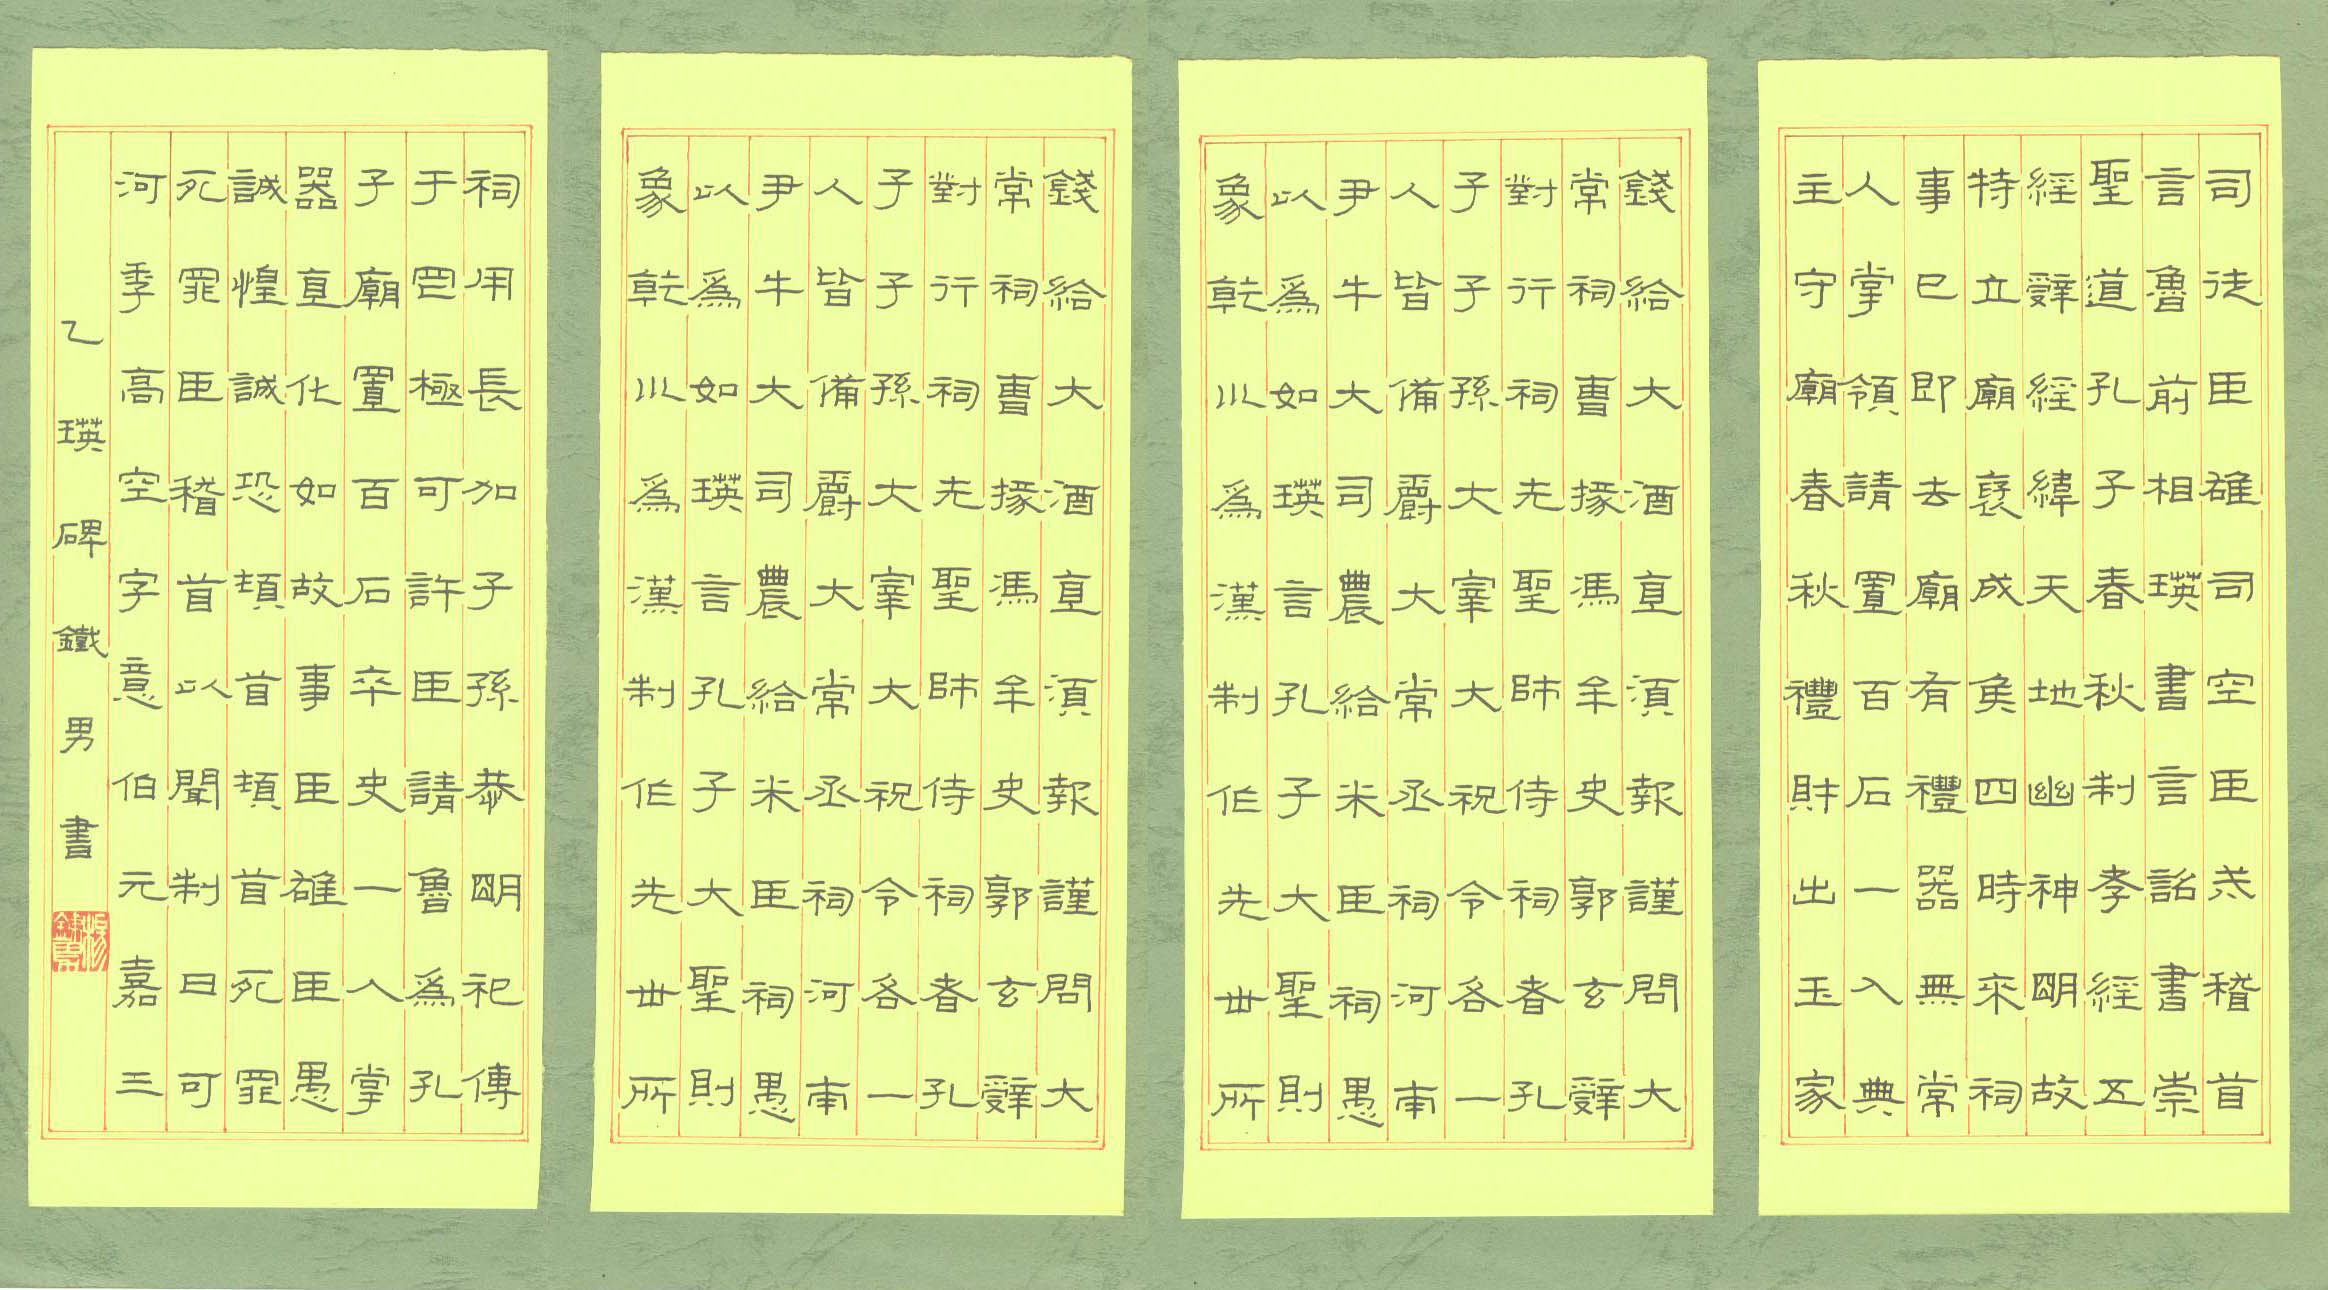 司徒臣雄司空臣戒稽首
言魯前相瑛書言詔書崇
聖道孔子春秋制孝經五
經辭經緯天地幽神明故
特立廟褒成侯四時來祠
事已即去廟有禮器無常
人掌領請置百石一人典
主守廟春秋禮財出王家
錢給大酒直須報謹問大
常祠曹掾馮牟史郭玄辭
對行祠先聖師侍祠者孔
子子孫大宰大祝令各一
人皆備爵大常丞祠河南
尹牛大司農給米臣祠愚
以為如瑛言孔子大聖則
象乾川為漢制作先世所
錢給大酒直須報謹問大
常祠曹掾馮牟史郭玄辭
對行祠先聖師侍祠者孔
子子孫大宰大祝令各一
人皆備爵大常丞祠河南
尹牛大司農給米臣祠愚
以為如瑛言孔子大聖則
象乾川為漢制作先世所
祠用長加子孫恭明祀傳
于罔極可許臣請魯為孔
子廟置百石卒史一人掌
器直化如故事臣雄臣愚
誠惶誠恐頓首頓首死罪
死罪臣稽首以聞制曰可
河季高空字意伯元嘉三
乙瑛碑鐵男書